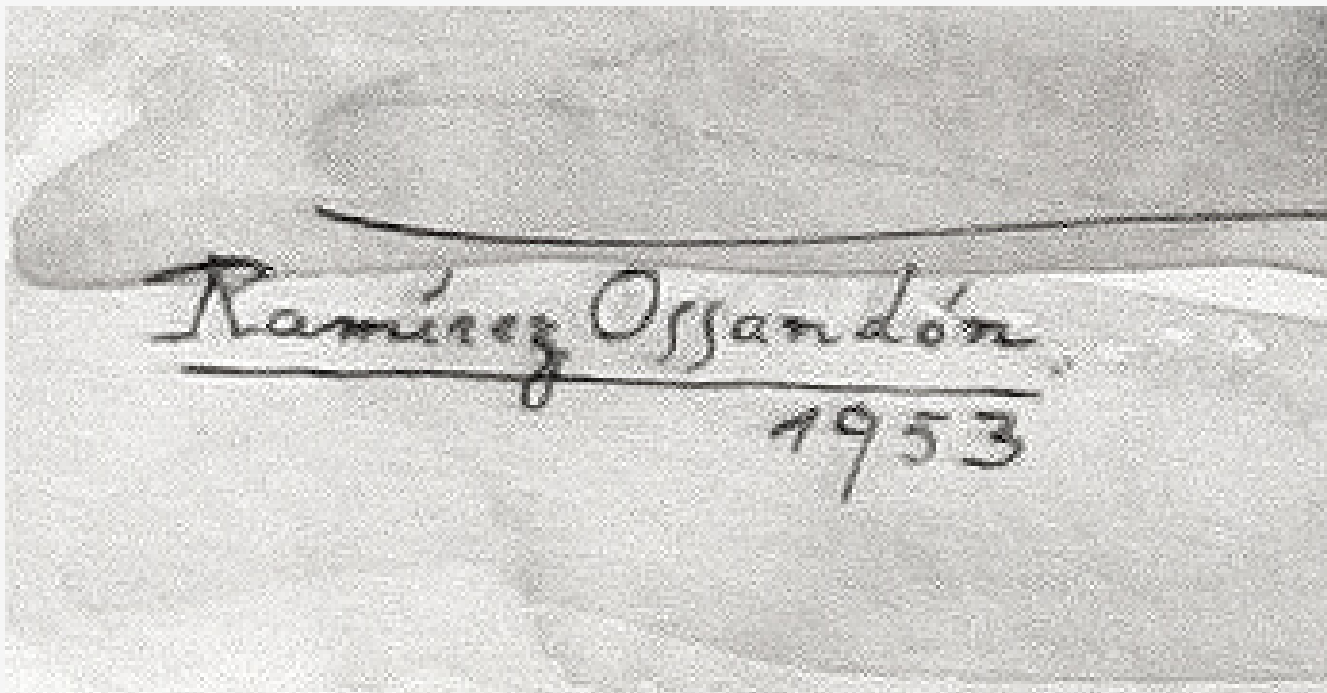 Ramírez Ossandón
1953